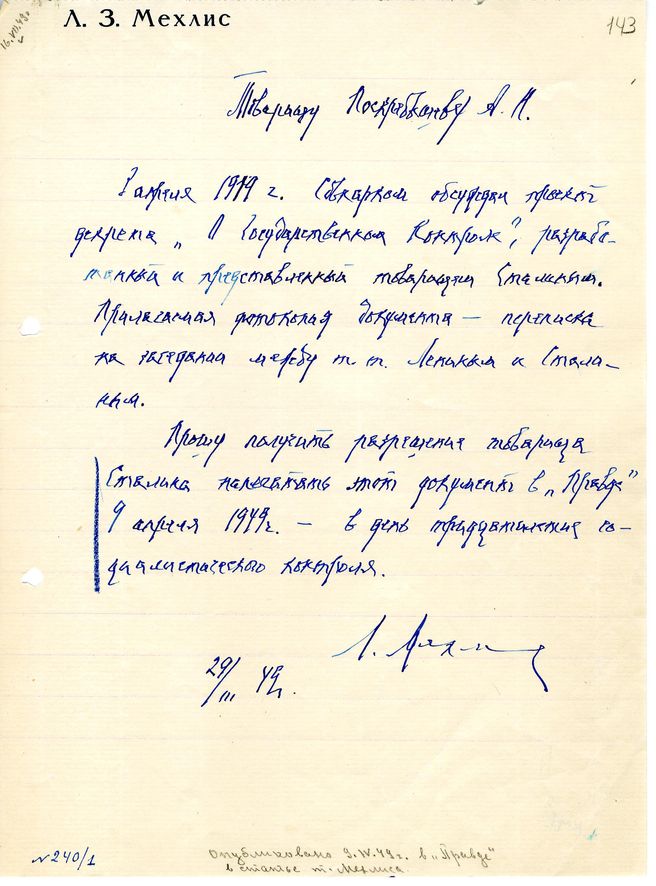 Л. З. Мехлис
143
Товарищу Поскребышеву А. Н.
1919 г. Совнарком обсуждал проект
декрета „О Государственном Контроле“, разрабо-
танный и представленный товарищем Сталиным.
Прилагаемая фотокопия документа — переписка
на заседании между т. т. Лениным и Стали-
ным.
Прошу получить разрешение товарища
Сталина напечатать этот документ в „Правде“
9 апреля 1949 г. — в день тридцатилетия со-
циалистического контроля.
Л. Мехлис
29/III 49 г.
№240/1
Опубликовано 9.IV.49 г. в „Правде“
в статье т. Мехлиса.